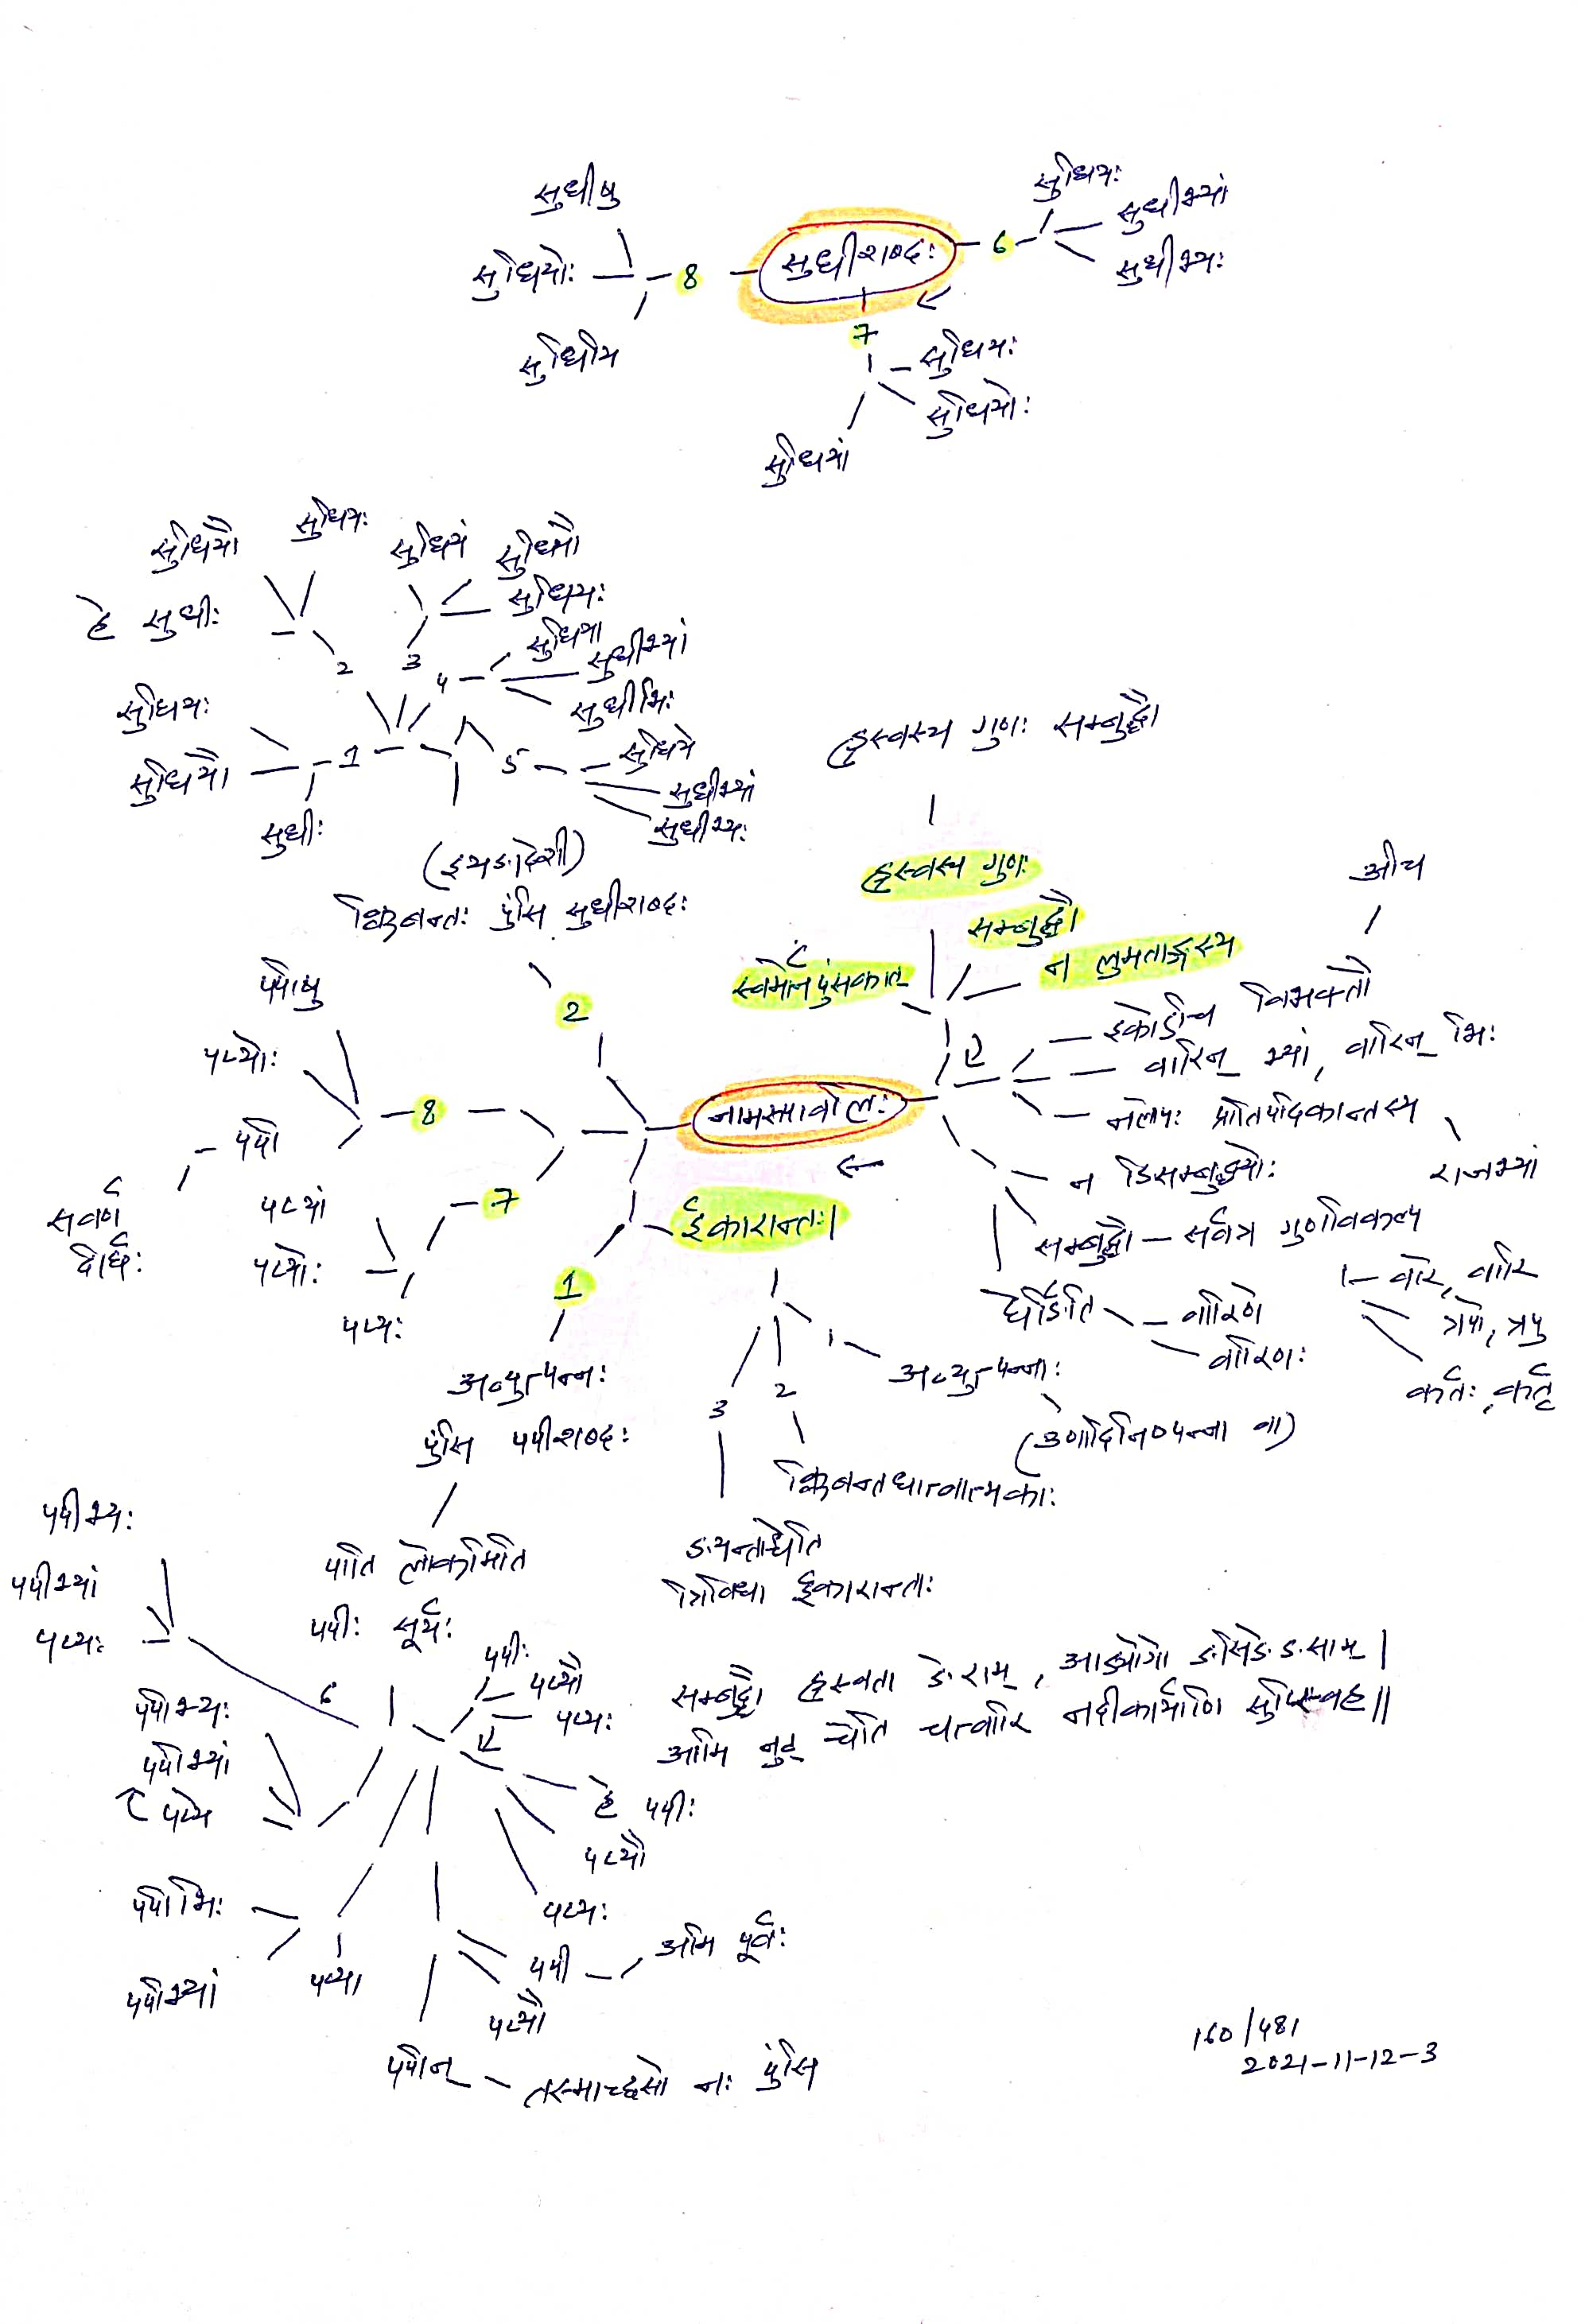 सुधीषु
सुधियोः
8
सुधियि
सुधीशब्दः
6
सुधियः
सुधीभ्यां
सुधीभ्यः
7
सुधियः
सुधियोः
सुधियां
सुधियौ
सुधियः
हे सुधीः
2
सुधियं
सुधियौ
सुधियः
3
4
सुधिया
सुधीभ्यां
सुधीभिः
सुधियः
सुधियौ
1
सुधीः
5
सुधिये
सुधीभ्यां
सुधीभ्यः
(इयङादेशी)
क्विबन्तः पुंसि सुधीशब्दः
2
ह्रस्वस्य गुणः सम्बुद्धौ
ह्रस्वस्य गुणः
सम्बुद्धौ
न लुमताङ्गस्य
स्वमोर्नपुंसकात्
अचि
इकोऽचि विभक्तौ
वारिन् भ्यां, वारिन् भिः
नलोपः प्रातिपदिकान्तस्य
राजभ्यां
न ङिसम्बुद्ध्योः
सम्बुद्धौ – सर्वत्र गुणविकल्प
वारे, वारि
त्रपो, त्रपु
कर्तः, कर्तृ
घेर्ङिति
वारिणे
वारिणः
नामसावलिः
पपीषु
पप्योः
8
पपी
सवर्ण
दीर्घः
पप्यां
7
पप्योः
पप्यः
ईकारान्तः।
1
अव्युत्पन्नः
पुंसि पपीशब्दः
पाति लोकमिति
पपीः सूर्यः
अव्युत्पन्नाः
(उणादिनिष्पन्ना वा)
2
क्विबन्तधात्वात्मकाः
3
ङ्यन्ताश्चेति
त्रिविधा ईकारान्ताः
सम्बुद्धौ ह्रस्वता ङेराम्, आड्योगो ङसिङेङसाम्।
आमि नुट् चेति चत्वारि नदीकार्याणि सुप्स्विह॥
पपीभ्यः
पपीभ्यां
पप्यः
6
पपीः
पप्यौ
पप्यः
पपीभ्यः
पपीभ्यां
पप्ये
हे पपीः
पप्यौ
पप्यः
पपीभिः
पपीभ्यां
पप्या
पपीं
अमि पूर्वः
पप्यौ
पपीन् – तस्माच्छसो नः पुंसि
160/481
2021-11-12-3